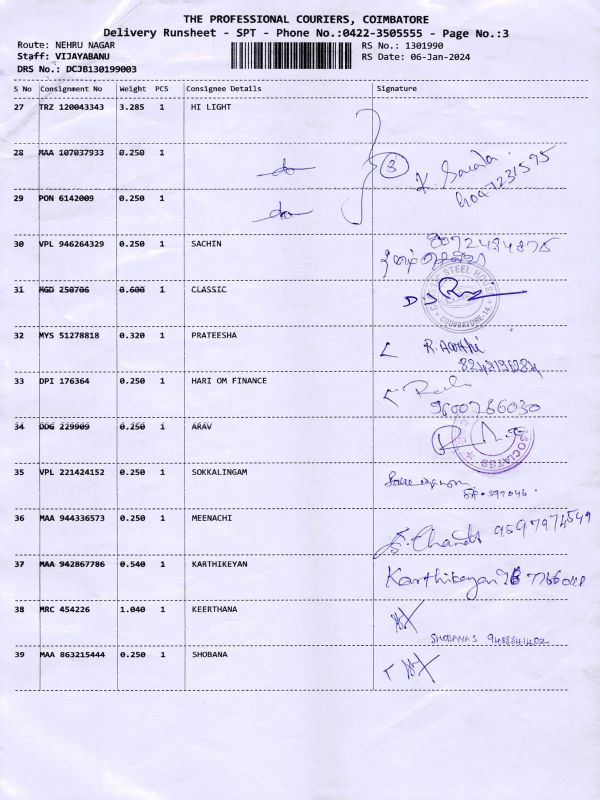 THE PROFESSIONAL COURIERS, COIMBATORE
Delivery Runsheet - SPT - Phone No.:0422-3505555 - Page No.:3
Route: NEHRU NAGAR
RS No.: 1301990
Staff: VIJAYABANU
RS Date: 06-Jan-2024
DRS No.: DCJB130199003
S No Consignment No Weight PCS Consignee Details Signature
27 TRZ 120043343 3.285 1 HI LIGHT
28 MAA 107037933 0.250 1 do
3
K. Sarala
29 PON 6142009 0.250 1 do
30 VPL 946264329 0.250 1 SACHIN
31 MGD 250706 0.600 1 CLASSIC
STEEL HOUSE
COIMBATORE-14
32 MYS 51278818 0.320 1 PRATEESHA
R. Aarthi
33 DPI 176364 0.250 1 HARI OM FINANCE
9600786030
34 DDG 229909 0.250 1 ARAV
35 VPL 221424152 0.250 1 SOKKALINGAM
36 MAA 944336573 0.250 1 MEENACHI
9597974549
37 MAA 942867786 0.540 1 KARTHIKEYAN
Karthikeyan
38 MRC 454226 1.040 1 KEERTHANA
SHOBANA S
39 MAA 863215444 0.250 1 SHOBANA